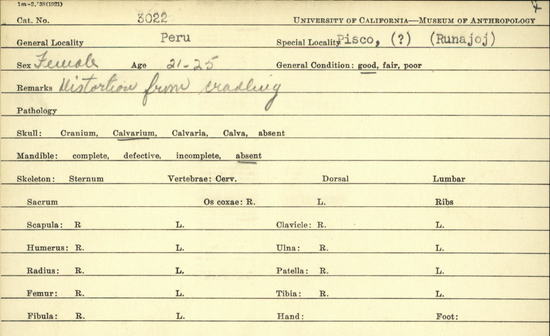 1m-2,'38(1921)
Cat. No. 3022 UNIVERSITY OF CALIFORNIA—MUSEUM OF ANTHROPOLOGY
General Locality Peru Special Locality Pisco, (?) (Runajoj)
Sex Female Age 21-25 General Condition: good, fair, poor
Remarks Distortion from cradling
Pathology
Skull: Cranium, Calvarium, Calvaria, Calva, absent
Mandible: complete, defective, incomplete, absent
Skeleton: Sternum Vertebrae: Cerv. Dorsal Lumbar
Sacrum Os coxae: R. L. Ribs
Scapula: R L. Clavicle: R. L.
Humerus: R. L. Ulna: R. L.
Radius: R. L. Patella: R. L.
Femur: R. L. Tibia: R. L.
Fibula: R. L. Hand: Foot: